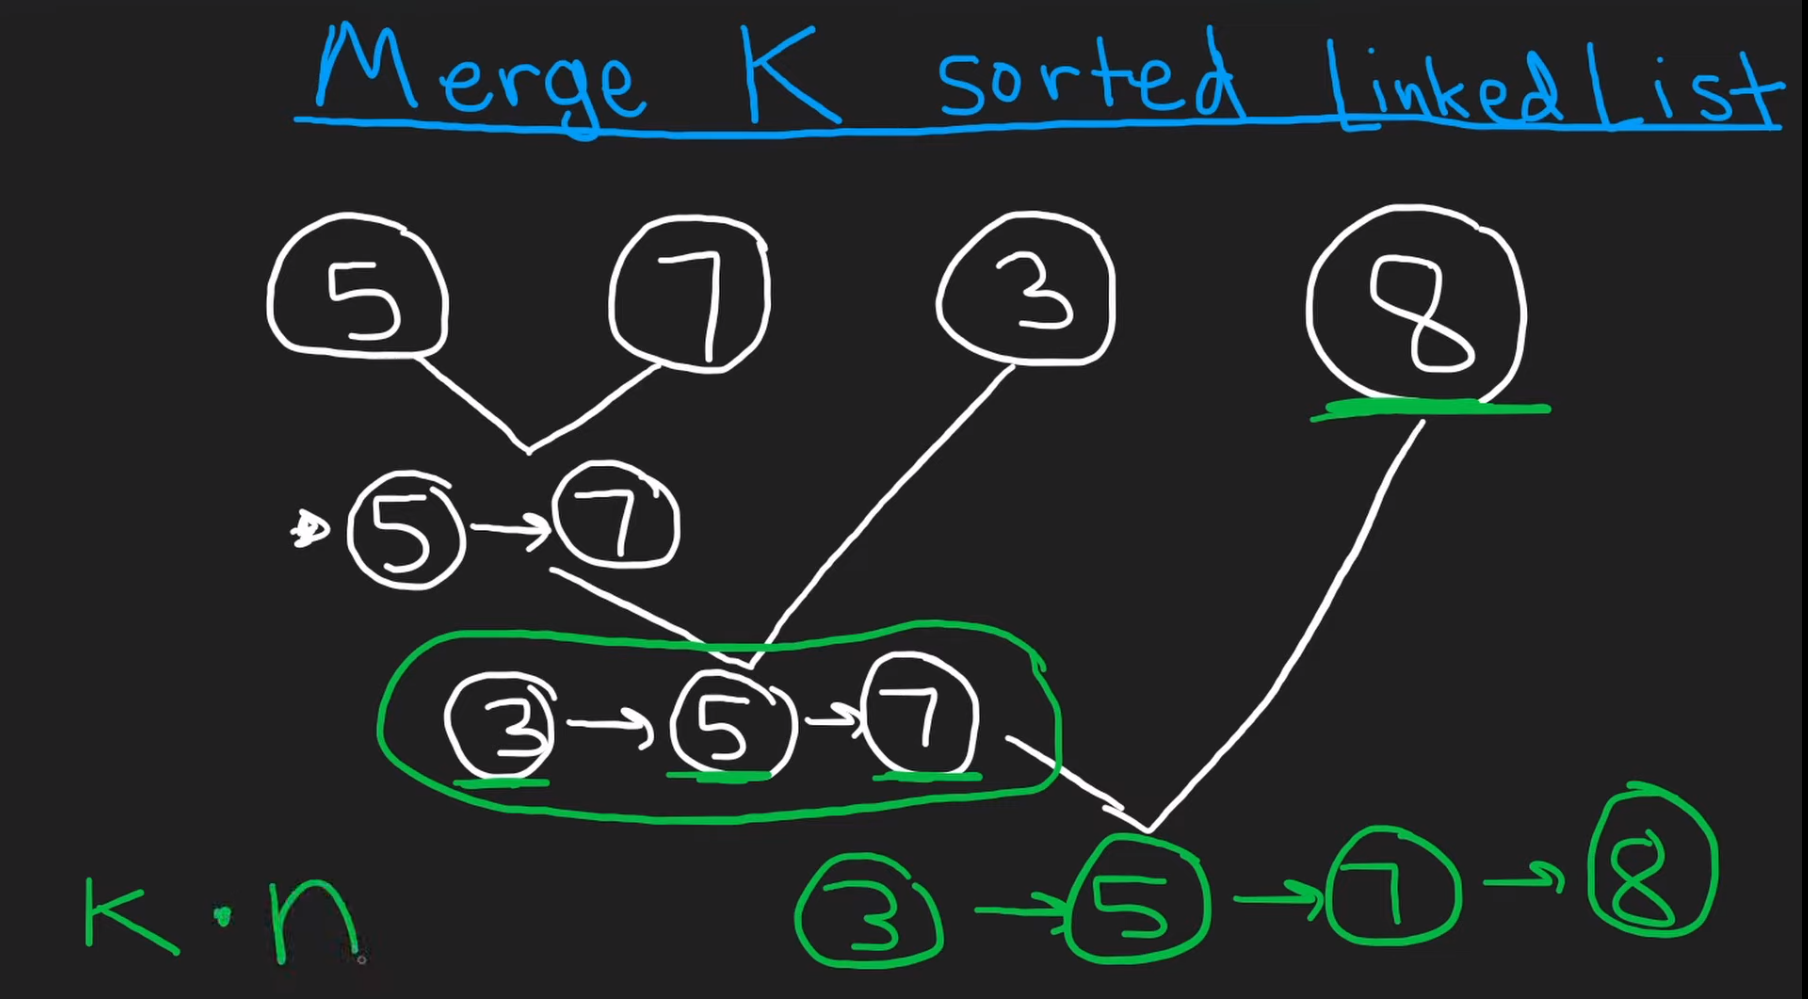 Merge K sorted Linked List
5 7 3 8
5 → 7
3 → 5 → 7
K · n
3 → 5 → 7 → 8